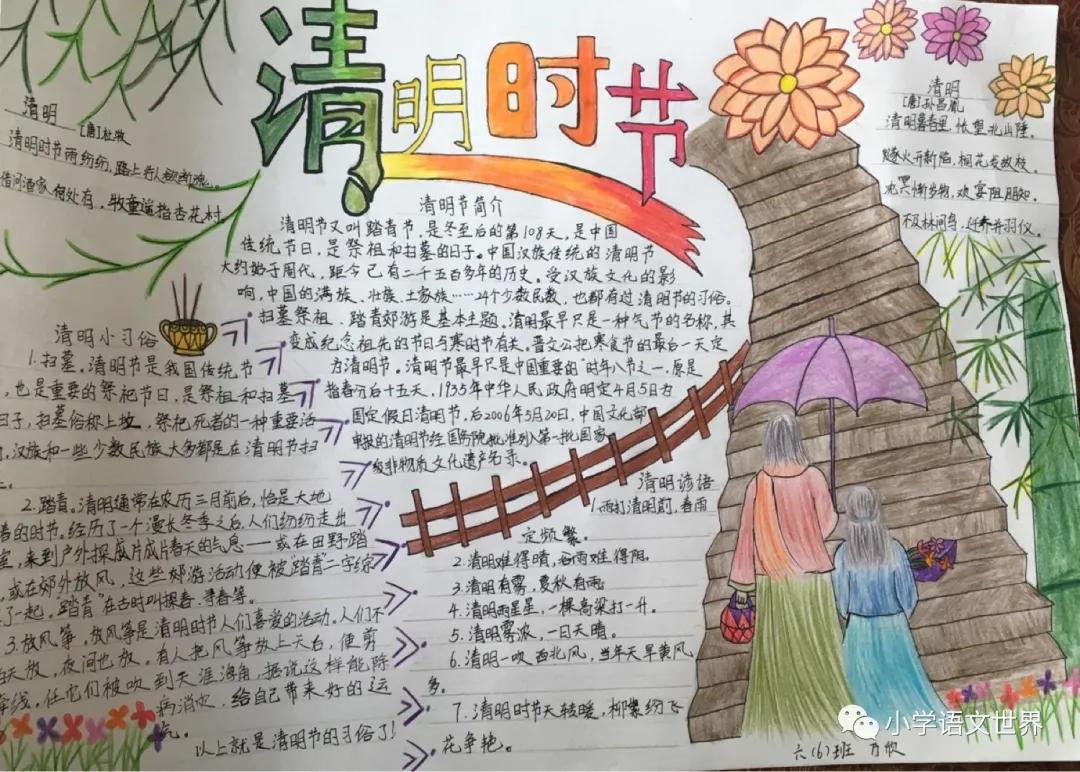 清明时节
清明
[唐]杜牧
清明时节雨纷纷,路上行人欲断魂。
借问酒家何处有,牧童遥指杏花村。
清明
[唐]孙昌胤
清明暮春里,怅望北山陲。
燧火开新焰,桐花发故枝。
沈冥惭岁物,欢宴阻朋知。
不及林间鸟,迁乔并羽仪。
清明节简介
清明节又叫踏青节,是冬至后的第108天,是中国
传统节日,是祭祖和扫墓的日子。中国汉族传统的清明节
大约始于周代,距今已有二千五百多年的历史。受汉族文化的影
响,中国的满族、壮族、土家族……24个少数民数,也都有过清明节的习俗。
扫墓祭祖、踏青郊游是基本主题。清明最早只是一种气节的名称,其
变成纪念祖先的节日与寒时节有关。晋文公把寒食节的最后一天定
为清明节。清明节最早只是中国重要的"时年八节"之一,原是
指春分后十五天,1935年中华人民政府明定4月5日为
国定假日清明节,后2006年5月20日,中国文化部
申报的清明节经国务院批准列入第一批国家
级非物质文化遗产名录。
清明小习俗
1.扫墓。清明节是我国传统节
,也是重要的祭祀节日,是祭祖和扫墓
日子,扫墓俗称上坟,祭祀死者的一种重要活
,汉族和一些少数民族大多都是在清明节扫
2.踏青。清明通常在农历三月前后,恰是大地
春的时节。经历了一个漫长冬季之后,人们纷纷走出
室,来到户外探成片成片春天的气息——或在田野踏
,或在郊外放风,这些郊游活动便被"踏青"二字综
了一起。"踏青"在古时叫探春、寻春等。
3.放风筝。放风筝是清明时节人们喜爱的活动。人们不
白天放,夜间也放。有人把风筝放上天后,便剪
牵线,任它们被吹到天涯海角,据说这样能除
病消灾,给自己带来好的运
气。
以上就是清明节的习俗了!
清明谚语
1.雨打清明前,春雨
定频繁。
2.清明难得晴,谷雨难得阴。
3.清明有雾,夏秋有雨
4.清明雨星星,一棵高粱打一升。
5.清明雾浓,一日天晴。
6.清明一吹西北风,当年天旱黄风
多。
7.清明时节天转暖,柳絮纷飞
花争艳。
小学语文世界
六(6)班